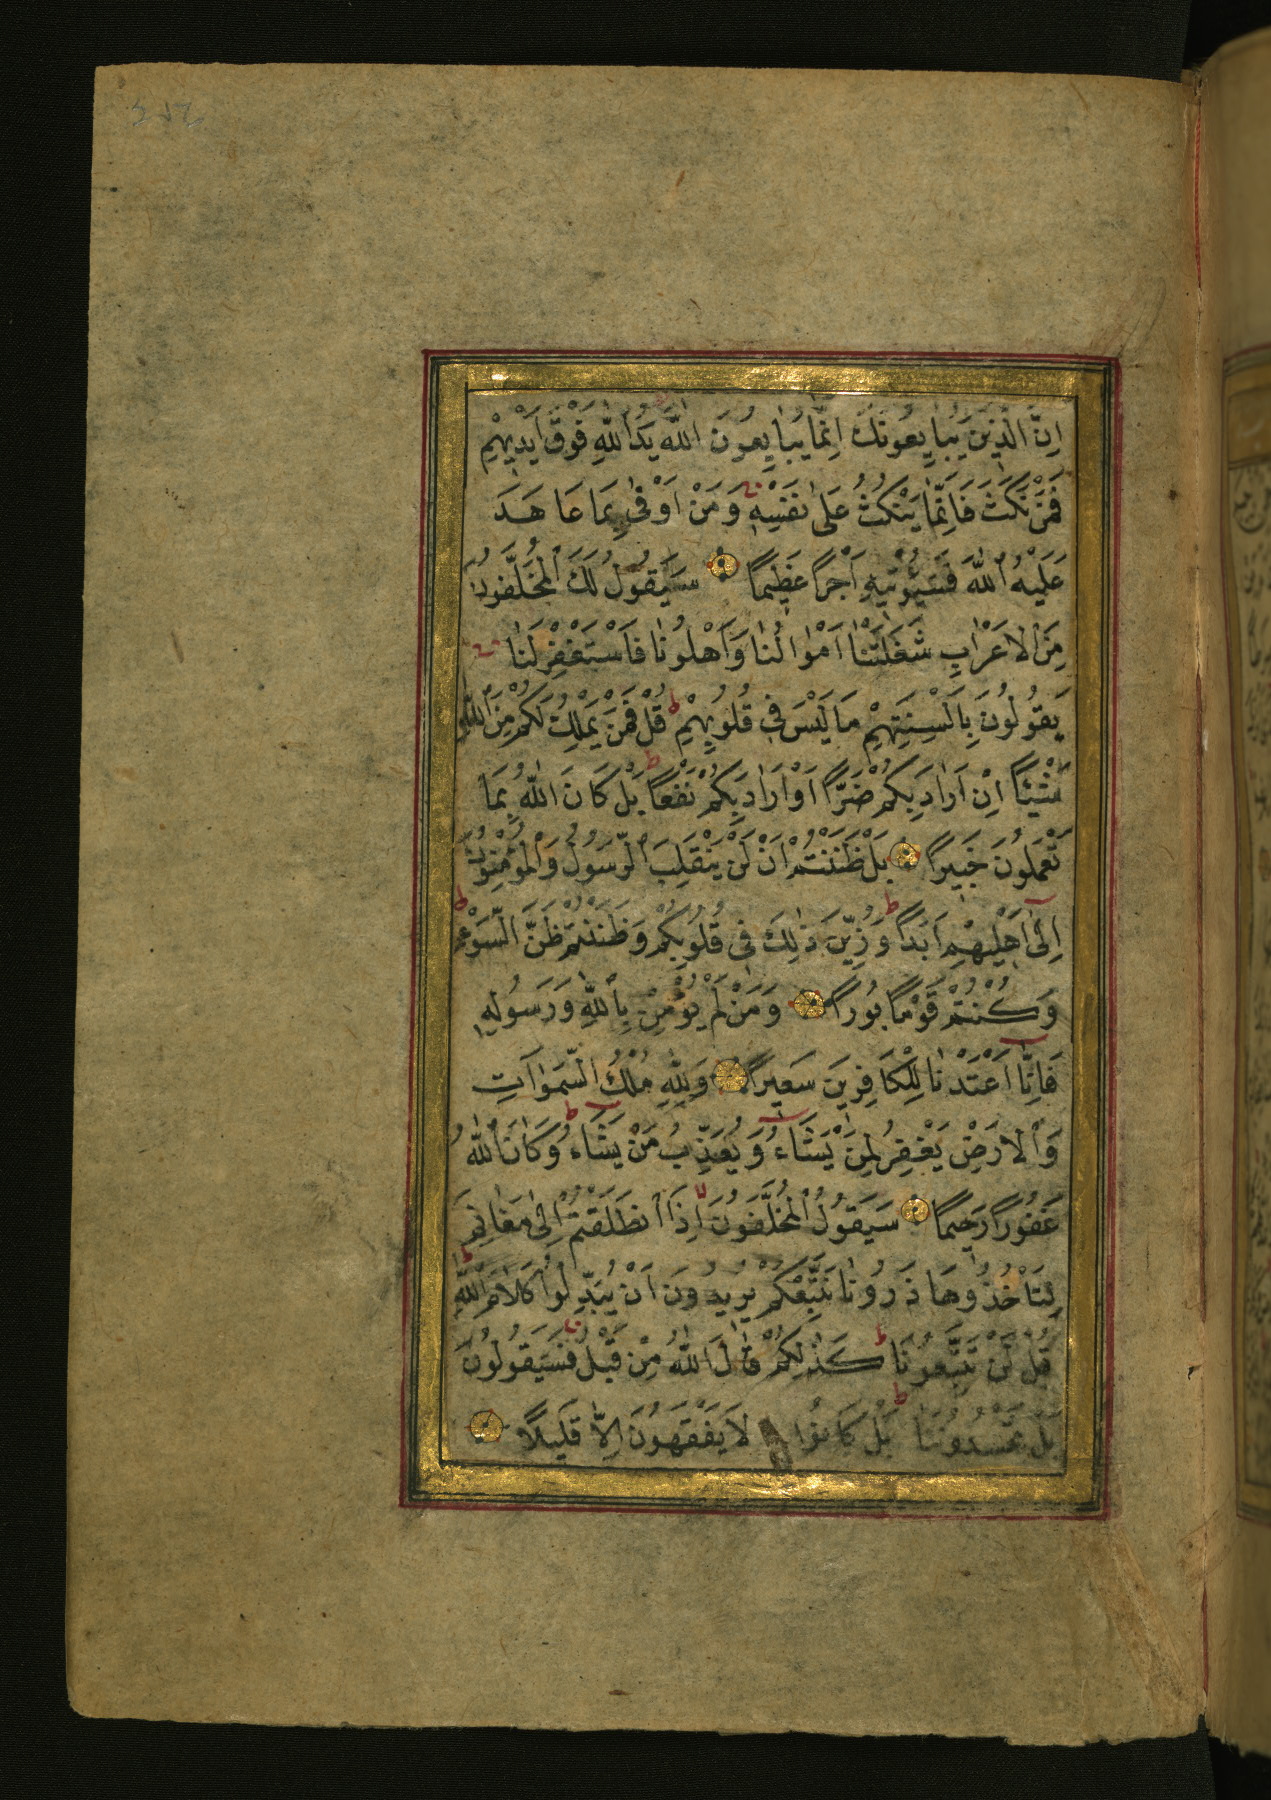 اِنَّ الَّذٖينَ يُبَايِعُونَكَ اِنَّمَا يُبَايِعُونَ اللّٰهَ يَدُ اللّٰهِ فَوْقَ اَيْدٖيهِمْ
فَمَنْ نَكَثَ فَاِنَّمَا يَنْكُثُ عَلٰى نَفْسِهٖ وَمَنْ اَوْفٰى بِمَا عَاهَدَ
عَلَيْهُ اللّٰهَ فَسَيُؤْتٖيهِ اَجْرًا عَظٖيمًا سَيَقُولُ لَكَ الْمُخَلَّفُونَ
مِنَ الْاَعْرَابِ شَغَلَتْنَا اَمْوَالُنَا وَاَهْلُونَا فَاسْتَغْفِرْ لَنَا
يَقُولُونَ بِاَلْسِنَتِهِمْ مَا لَيْسَ فٖى قُلُوبِهِمْ قُلْ فَمَنْ يَمْلِكُ لَكُمْ مِنَ اللّٰهِ
شَيْئًا اِنْ اَرَادَ بِكُمْ ضَرًّا اَوْ اَرَادَ بِكُمْ نَفْعًا بَلْ كَانَ اللّٰهُ بِمَا
تَعْمَلُونَ خَبٖيرًا بَلْ ظَنَنْتُمْ اَنْ لَنْ يَنْقَلِبَ الرَّسُولُ وَالْمُؤْمِنُونَ
اِلٰى اَهْلٖيهِمْ اَبَدًا وَزُيِّنَ ذٰلِكَ فٖى قُلُوبِكُمْ وَظَنَنْتُمْ ظَنَّ السَّوْءِ
وَكُنْتُمْ قَوْمًا بُورًا وَمَنْ لَمْ يُؤْمِنْ بِاللّٰهِ وَرَسُولِهٖ
فَاِنَّا اَعْتَدْنَا لِلْكَافِرٖينَ سَعٖيرًا وَلِلّٰهِ مُلْكُ السَّمٰوَاتِ
وَالْاَرْضِ يَغْفِرُ لِمَنْ يَشَاءُ وَيُعَذِّبُ مَنْ يَشَاءُ وَكَانَ اللّٰهُ
غَفُورًا رَحٖيمًا سَيَقُولُ الْمُخَلَّفُونَ اِذَا انْطَلَقْتُمْ اِلٰى مَغَانِمَ
لِتَأْخُذُوهَا ذَرُونَا نَتَّبِعْكُمْ يُرٖيدُونَ اَنْ يُبَدِّلُوا كَلَامَ اللّٰهِ
قُلْ لَنْ تَتَّبِعُونَا كَذٰلِكُمْ قَالَ اللّٰهُ مِنْ قَبْلُ فَسَيَقُولُونَ
بَلْ تَحْسُدُونَنَا بَلْ كَانُوا لَا يَفْقَهُونَ اِلَّا قَلٖيلًا